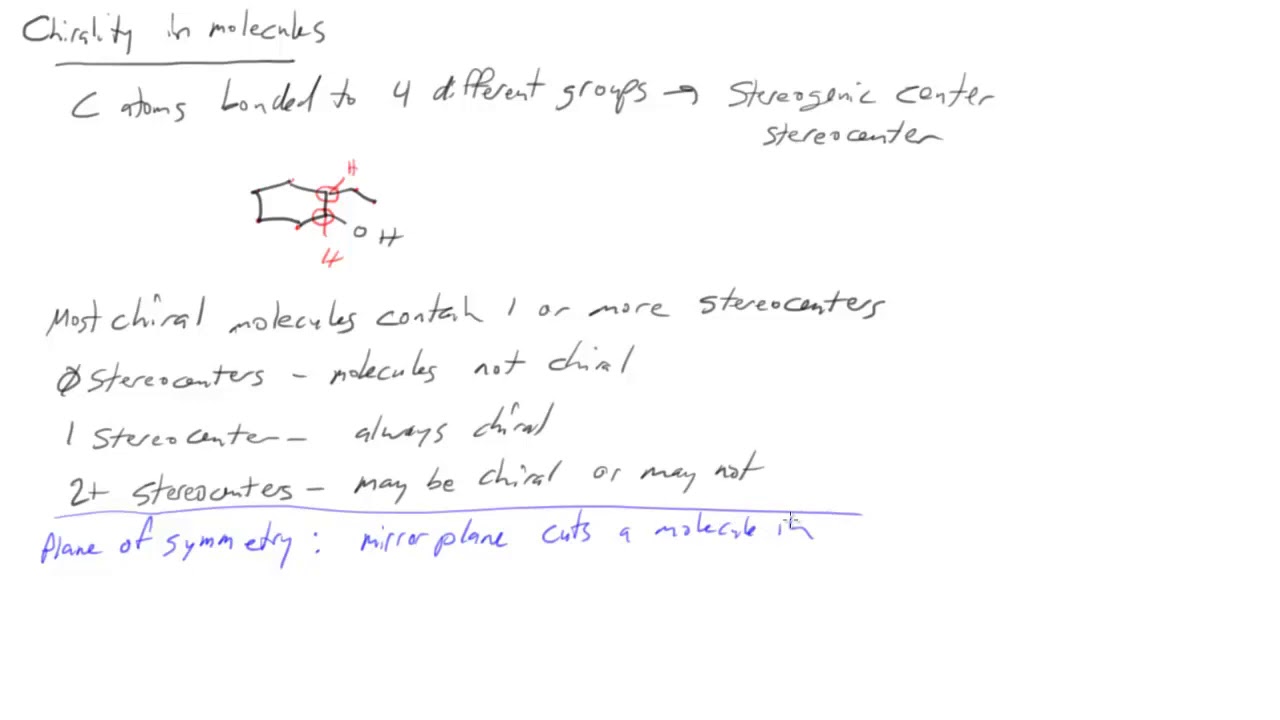 Chirality in molecules
C atoms bonded to 4 different groups → Stereogenic center
stereocenter
H
O H
H
Most chiral molecules contain 1 or more stereocenters
0 stereocenters - molecules not chiral
1 stereocenter - always chiral
2+ stereocenters - may be chiral or may not
Plane of symmetry: mirror plane cuts a molecule in